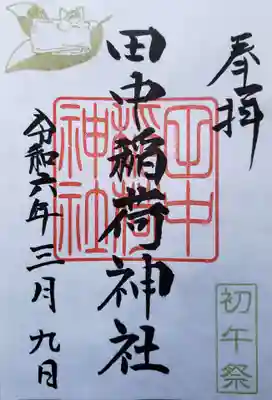 奉拝
田中稲荷神社
田中
稲荷
神社
令和六年三月九日
初午祭